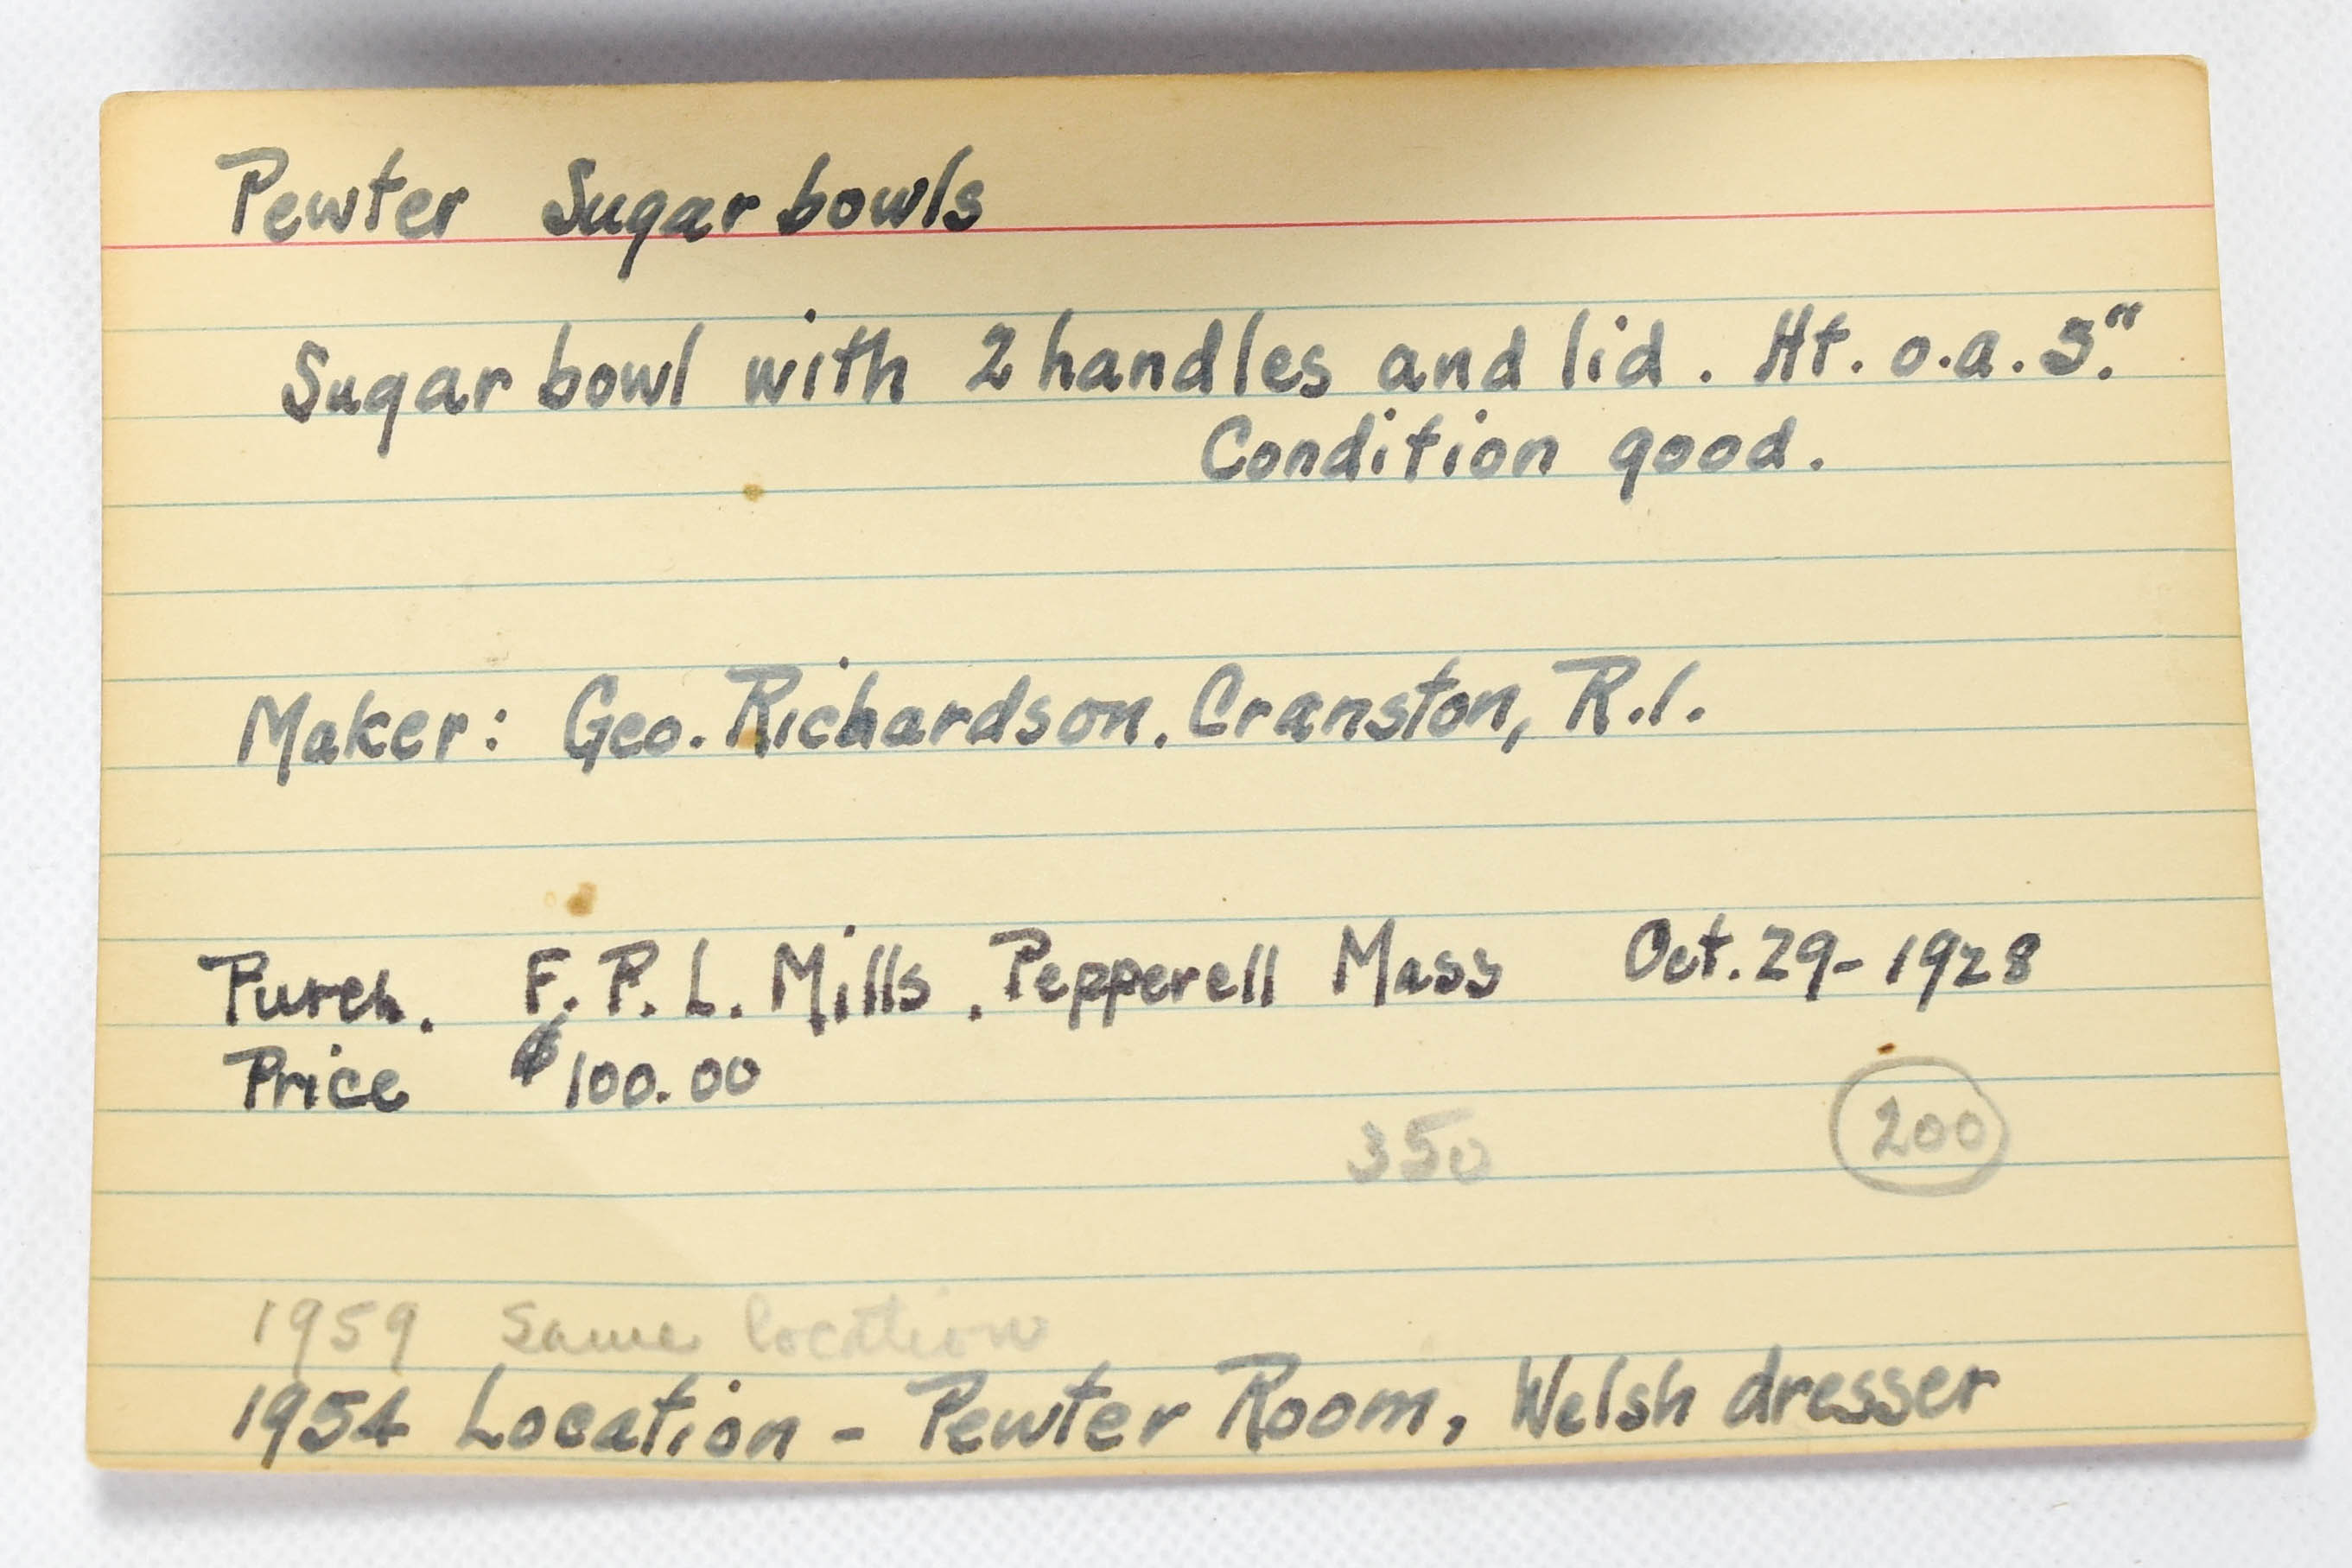 Pewter Sugar bowls
Sugar bowl with 2 handles and lid. Ht. o.a. 5."
Condition good.
Maker: Geo. Richardson. Cranston, R.I.
Purch. F. P. L. Mills. Pepperell Mass Oct. 29-1928
Price $100.00
350 200
1959 same location
1954 Location - Pewter Room, Welsh dresser